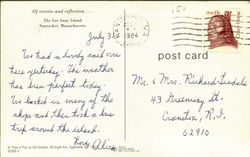 Of reverie and reflection...
The Far-Away Island
Nantucket, Massachusetts
July 31st
We had a lovely sail over
here yesterday. The weather
has been perfect today.
We looked in many of the
shops and then took a bus
trip around the island.
Love
Alice
1984
post card
Mr. & Mrs. Richard Tisdale
43 Greenway St.
Cranston, R.I.
02910